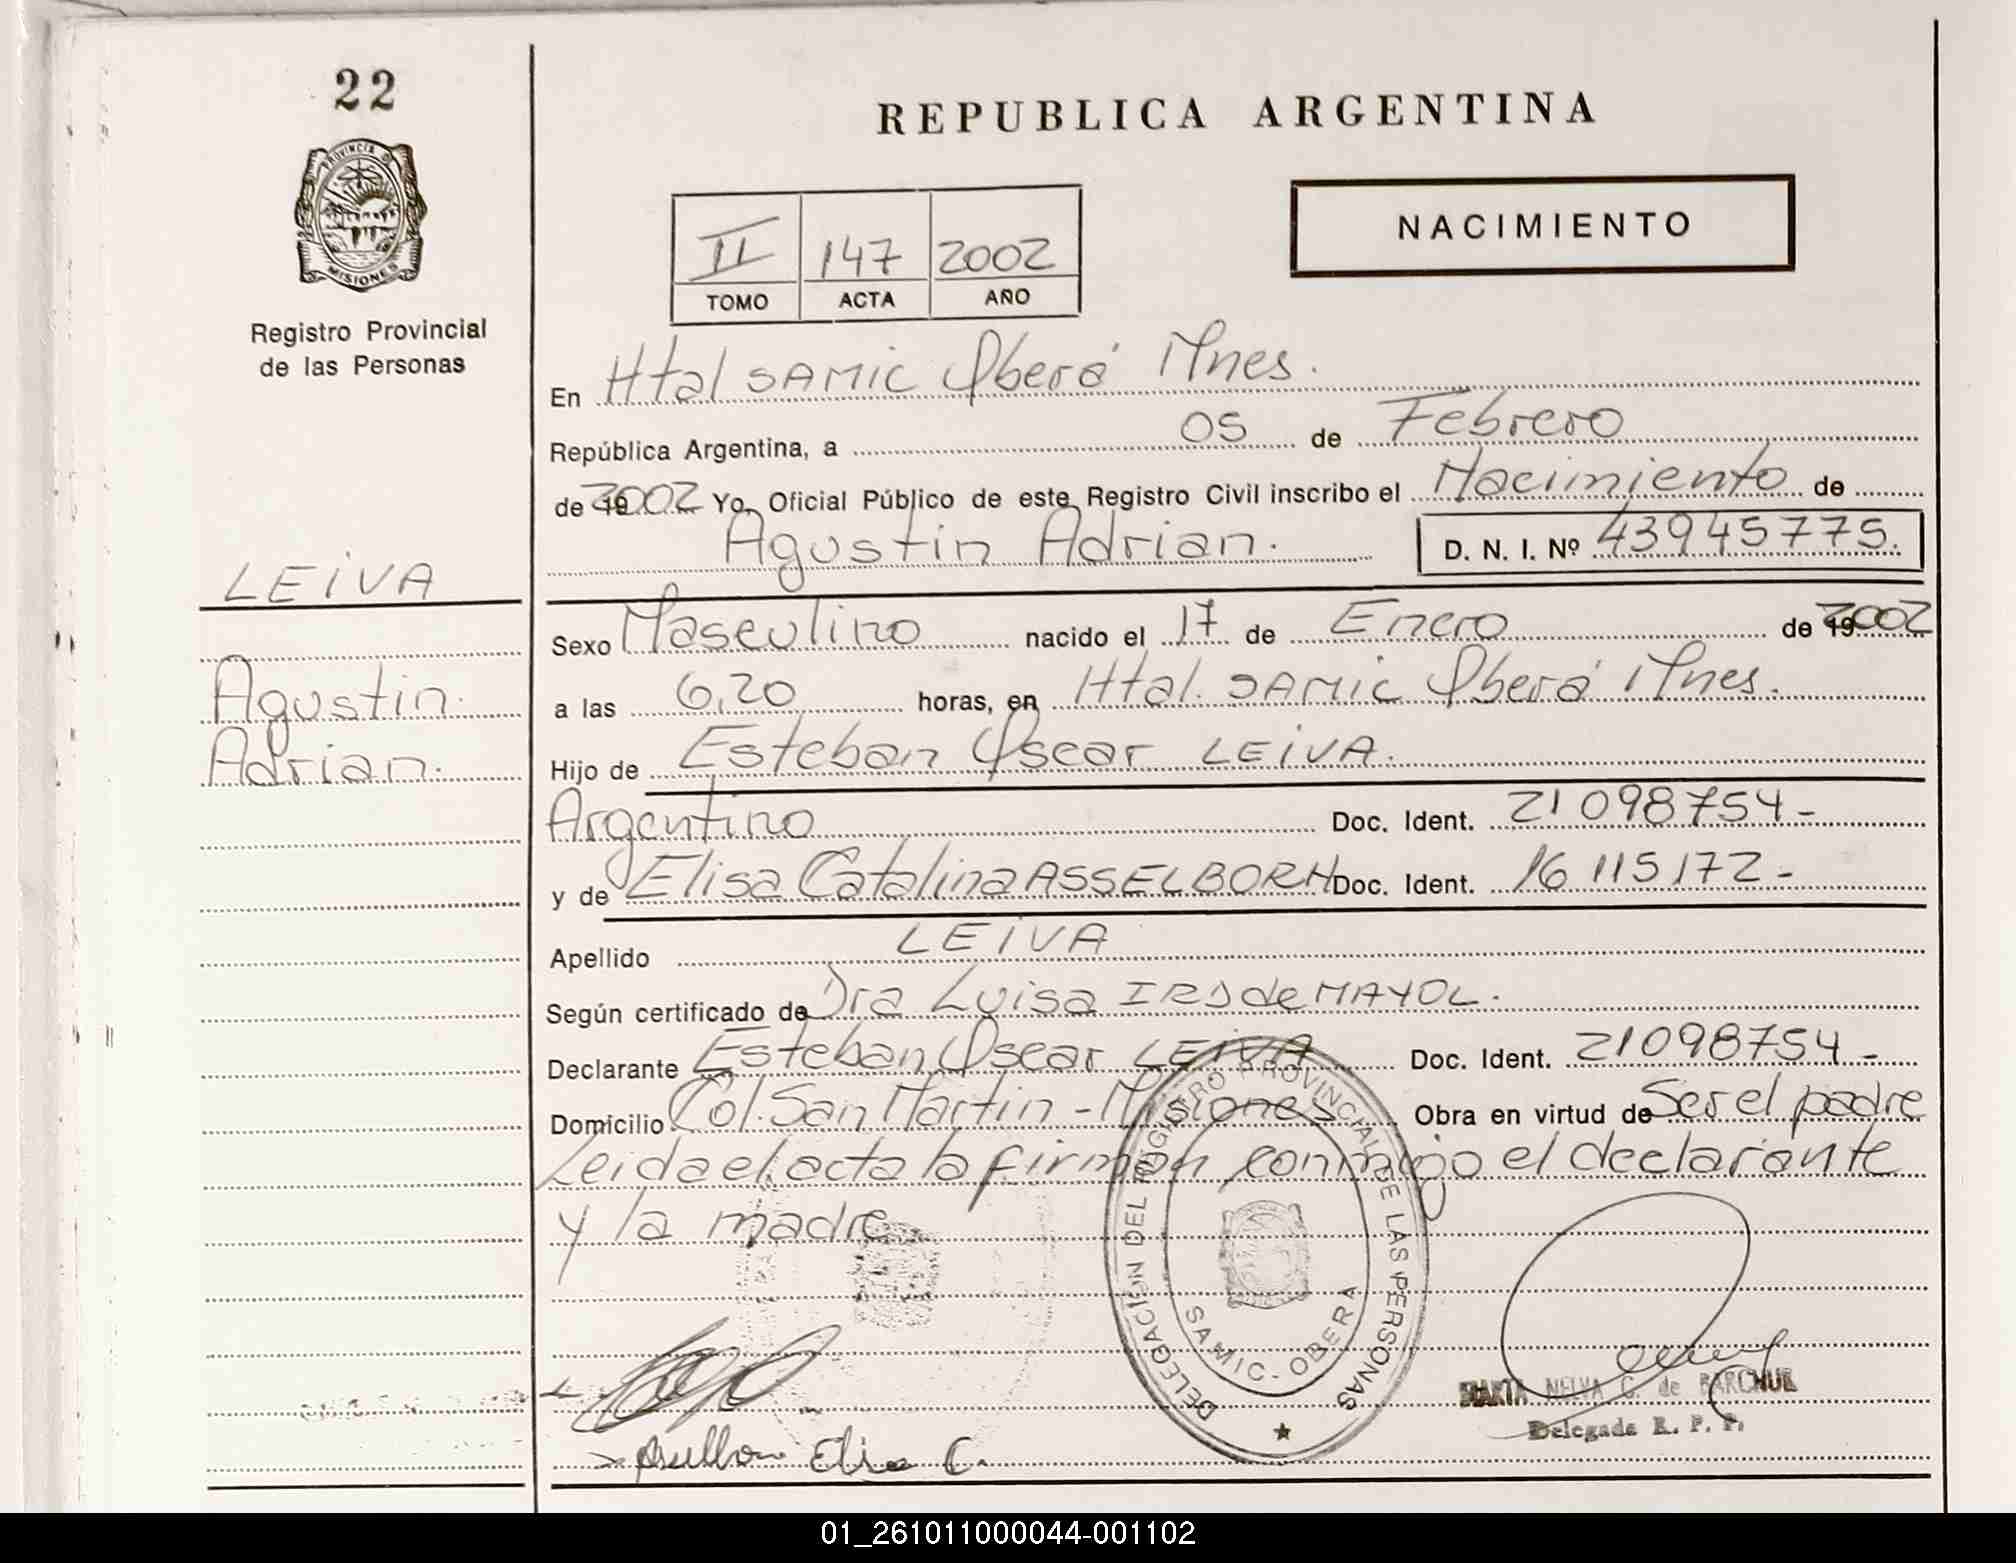 22
REPUBLICA ARGENTINA
PROVINCIA DE
MISIONES
Registro Provincial
de las Personas
II 147 2002
TOMO ACTA AÑO
NACIMIENTO
En Htal SAMIC Oberá Mnes.
República Argentina, a 05 de Febrero
de 2002 Yo, Oficial Público de este Registro Civil inscribo el Nacimiento de
Agustin Adrian. D. N. I. Nº 43945775.
LEIVA
Agustin.
Adrian.
Sexo Masculino nacido el 17 de Enero de 2002
a las 6,20 horas, en Htal. SAMIC Oberá Mnes.
Hijo de Esteban Oscar LEIVA.
Argentino Doc. Ident. 21098754-
y de Elisa Catalina ASSELBORN Doc. Ident. 16 115172-
Apellido LEIVA
Según certificado de Dra Luisa de MAYOL.
Declarante Esteban Oscar LEIVA Doc. Ident. 21098754-
Domicilio Col. San Martin - Misiones Obra en virtud de Ser el padre
Leida el acta la firman conmigo el declarante
y la madre
DELEGACIÓN DEL REGISTRO PROVINCIAL DE LAS PERSONAS
SAMIC - OBERA
MARTA NELVA G. de BARCHUK
Delegada R. P. P.
Elisa C.
01_261011000044-001102